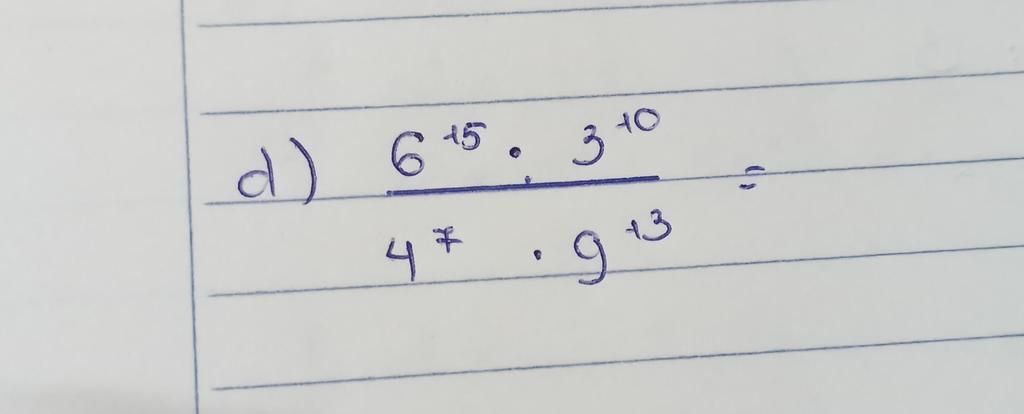 d) 6¹⁵ · 3¹⁰ =
4⁷ · 9¹³